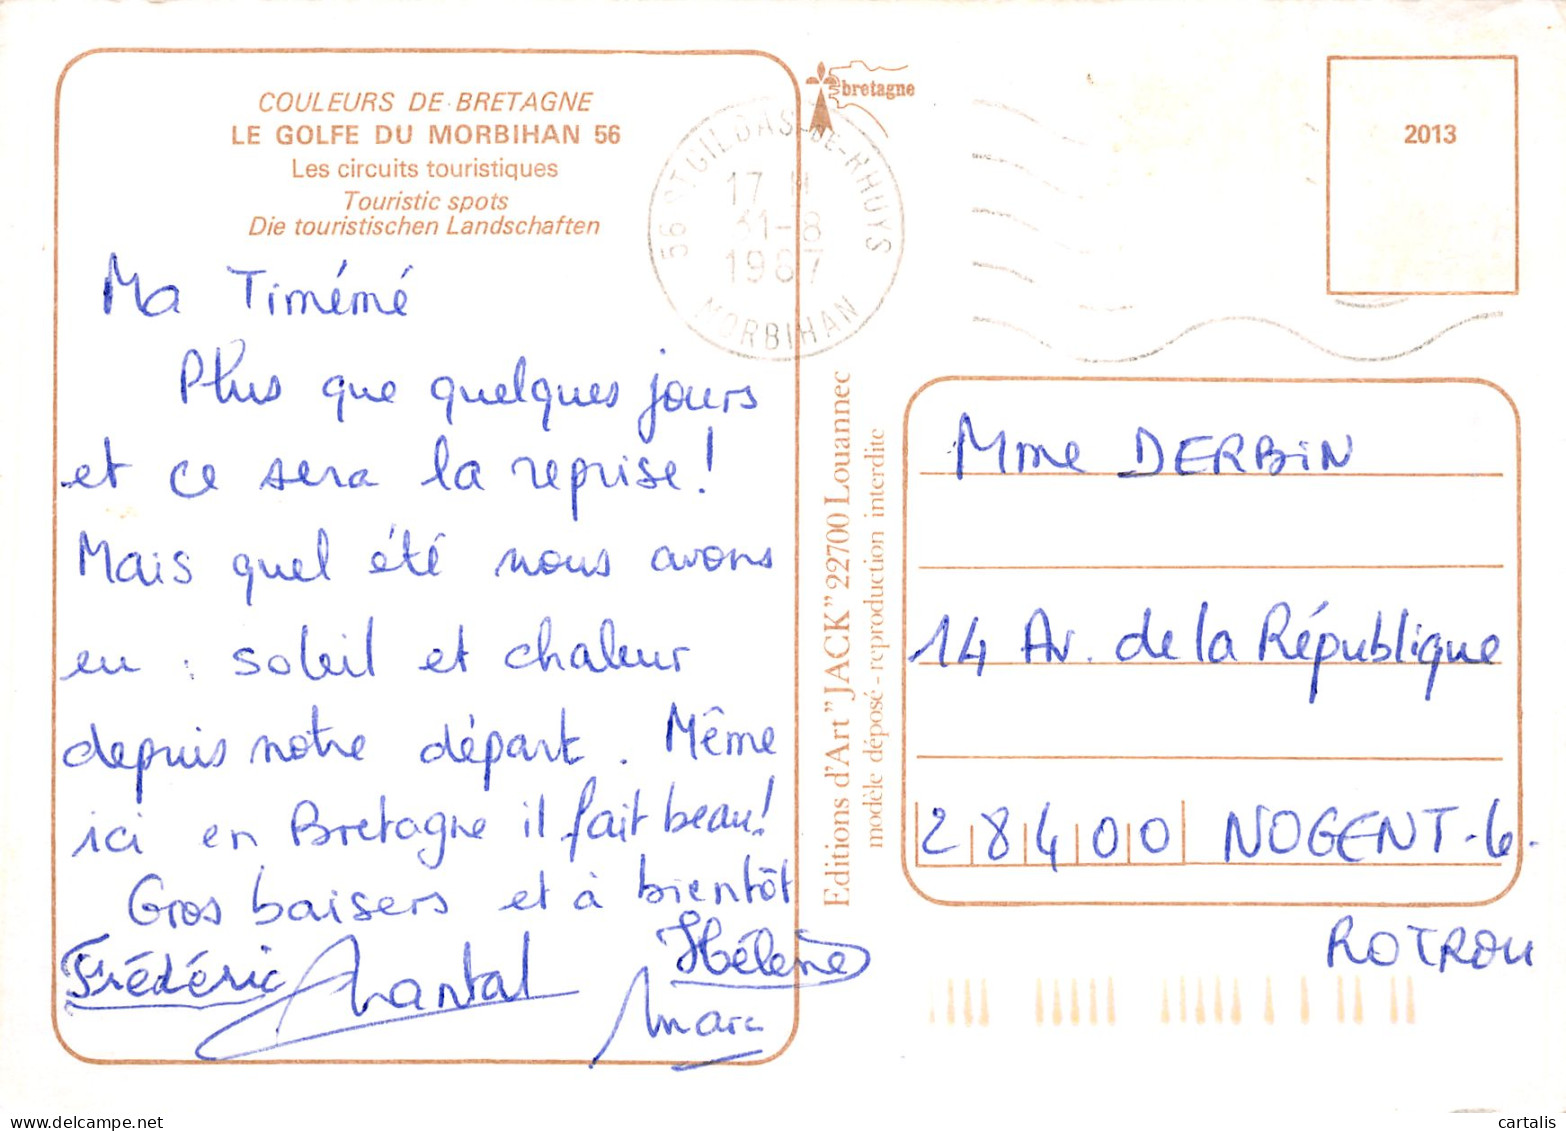 COULEURS DE BRETAGNE
LE GOLFE DU MORBIHAN 56
Les circuits touristiques
Touristic spots
Die touristischen Landschaften
Ma Timémé
Plus que quelques jours
et ce sera la reprise !
Mais quel été nous avons
eu : soleil et chaleur
depuis notre départ. Même
ici en Bretagne il fait beau !
Gros baisers et à bientôt
Frédéric Chantal Hélène
Marc
bretagne
56 ST GILDAS-DE-RHUYS
17 H
31-8
1987
MORBIHAN
Editions d'Art "JACK" 22700 Louannec
modèle déposé - reproduction interdite
2013
Mme DERBIN
14 Av. de la République
28400 NOGENT-le-
ROTROU
cartalis